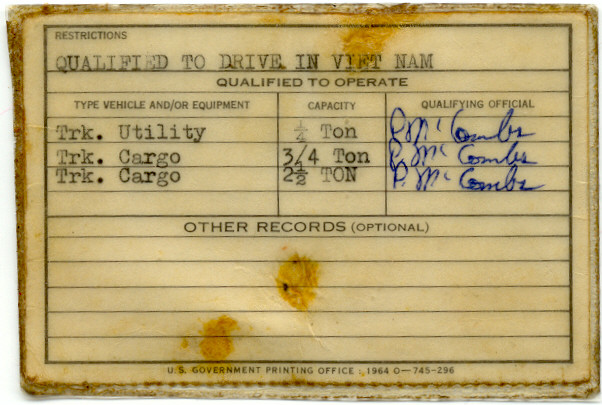 RESTRICTIONS
QUALIFIED TO DRIVE IN VIET NAM
QUALIFIED TO OPERATE
TYPE VEHICLE AND/OR EQUIPMENT CAPACITY QUALIFYING OFFICIAL
Trk. Utility ¼ Ton P. Mc Combs
Trk. Cargo 3/4 Ton P. Mc Combs
Trk. Cargo 2½ TON P. Mc Combs
OTHER RECORDS (OPTIONAL)
U.S. GOVERNMENT PRINTING OFFICE : 1964 O—745-296